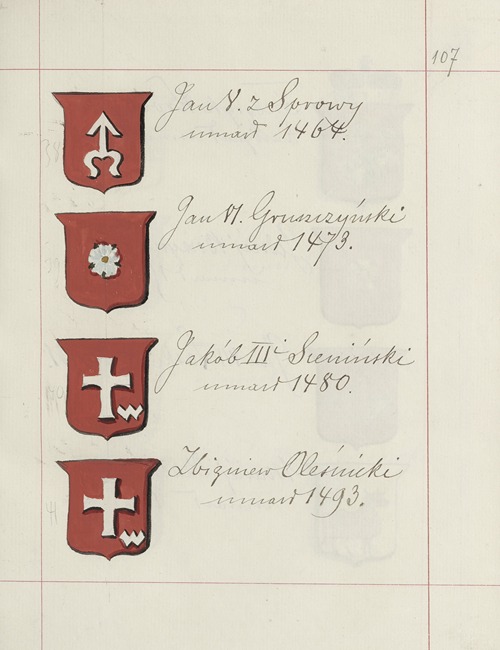 107
Jan V. z Sprowy
umarł 1464.
Jan VI. Gruszczyński
umarł 1473.
Jakób III i Sieniński
umarł 1480.
Zbigniew Oleśnicki
umarł 1493.